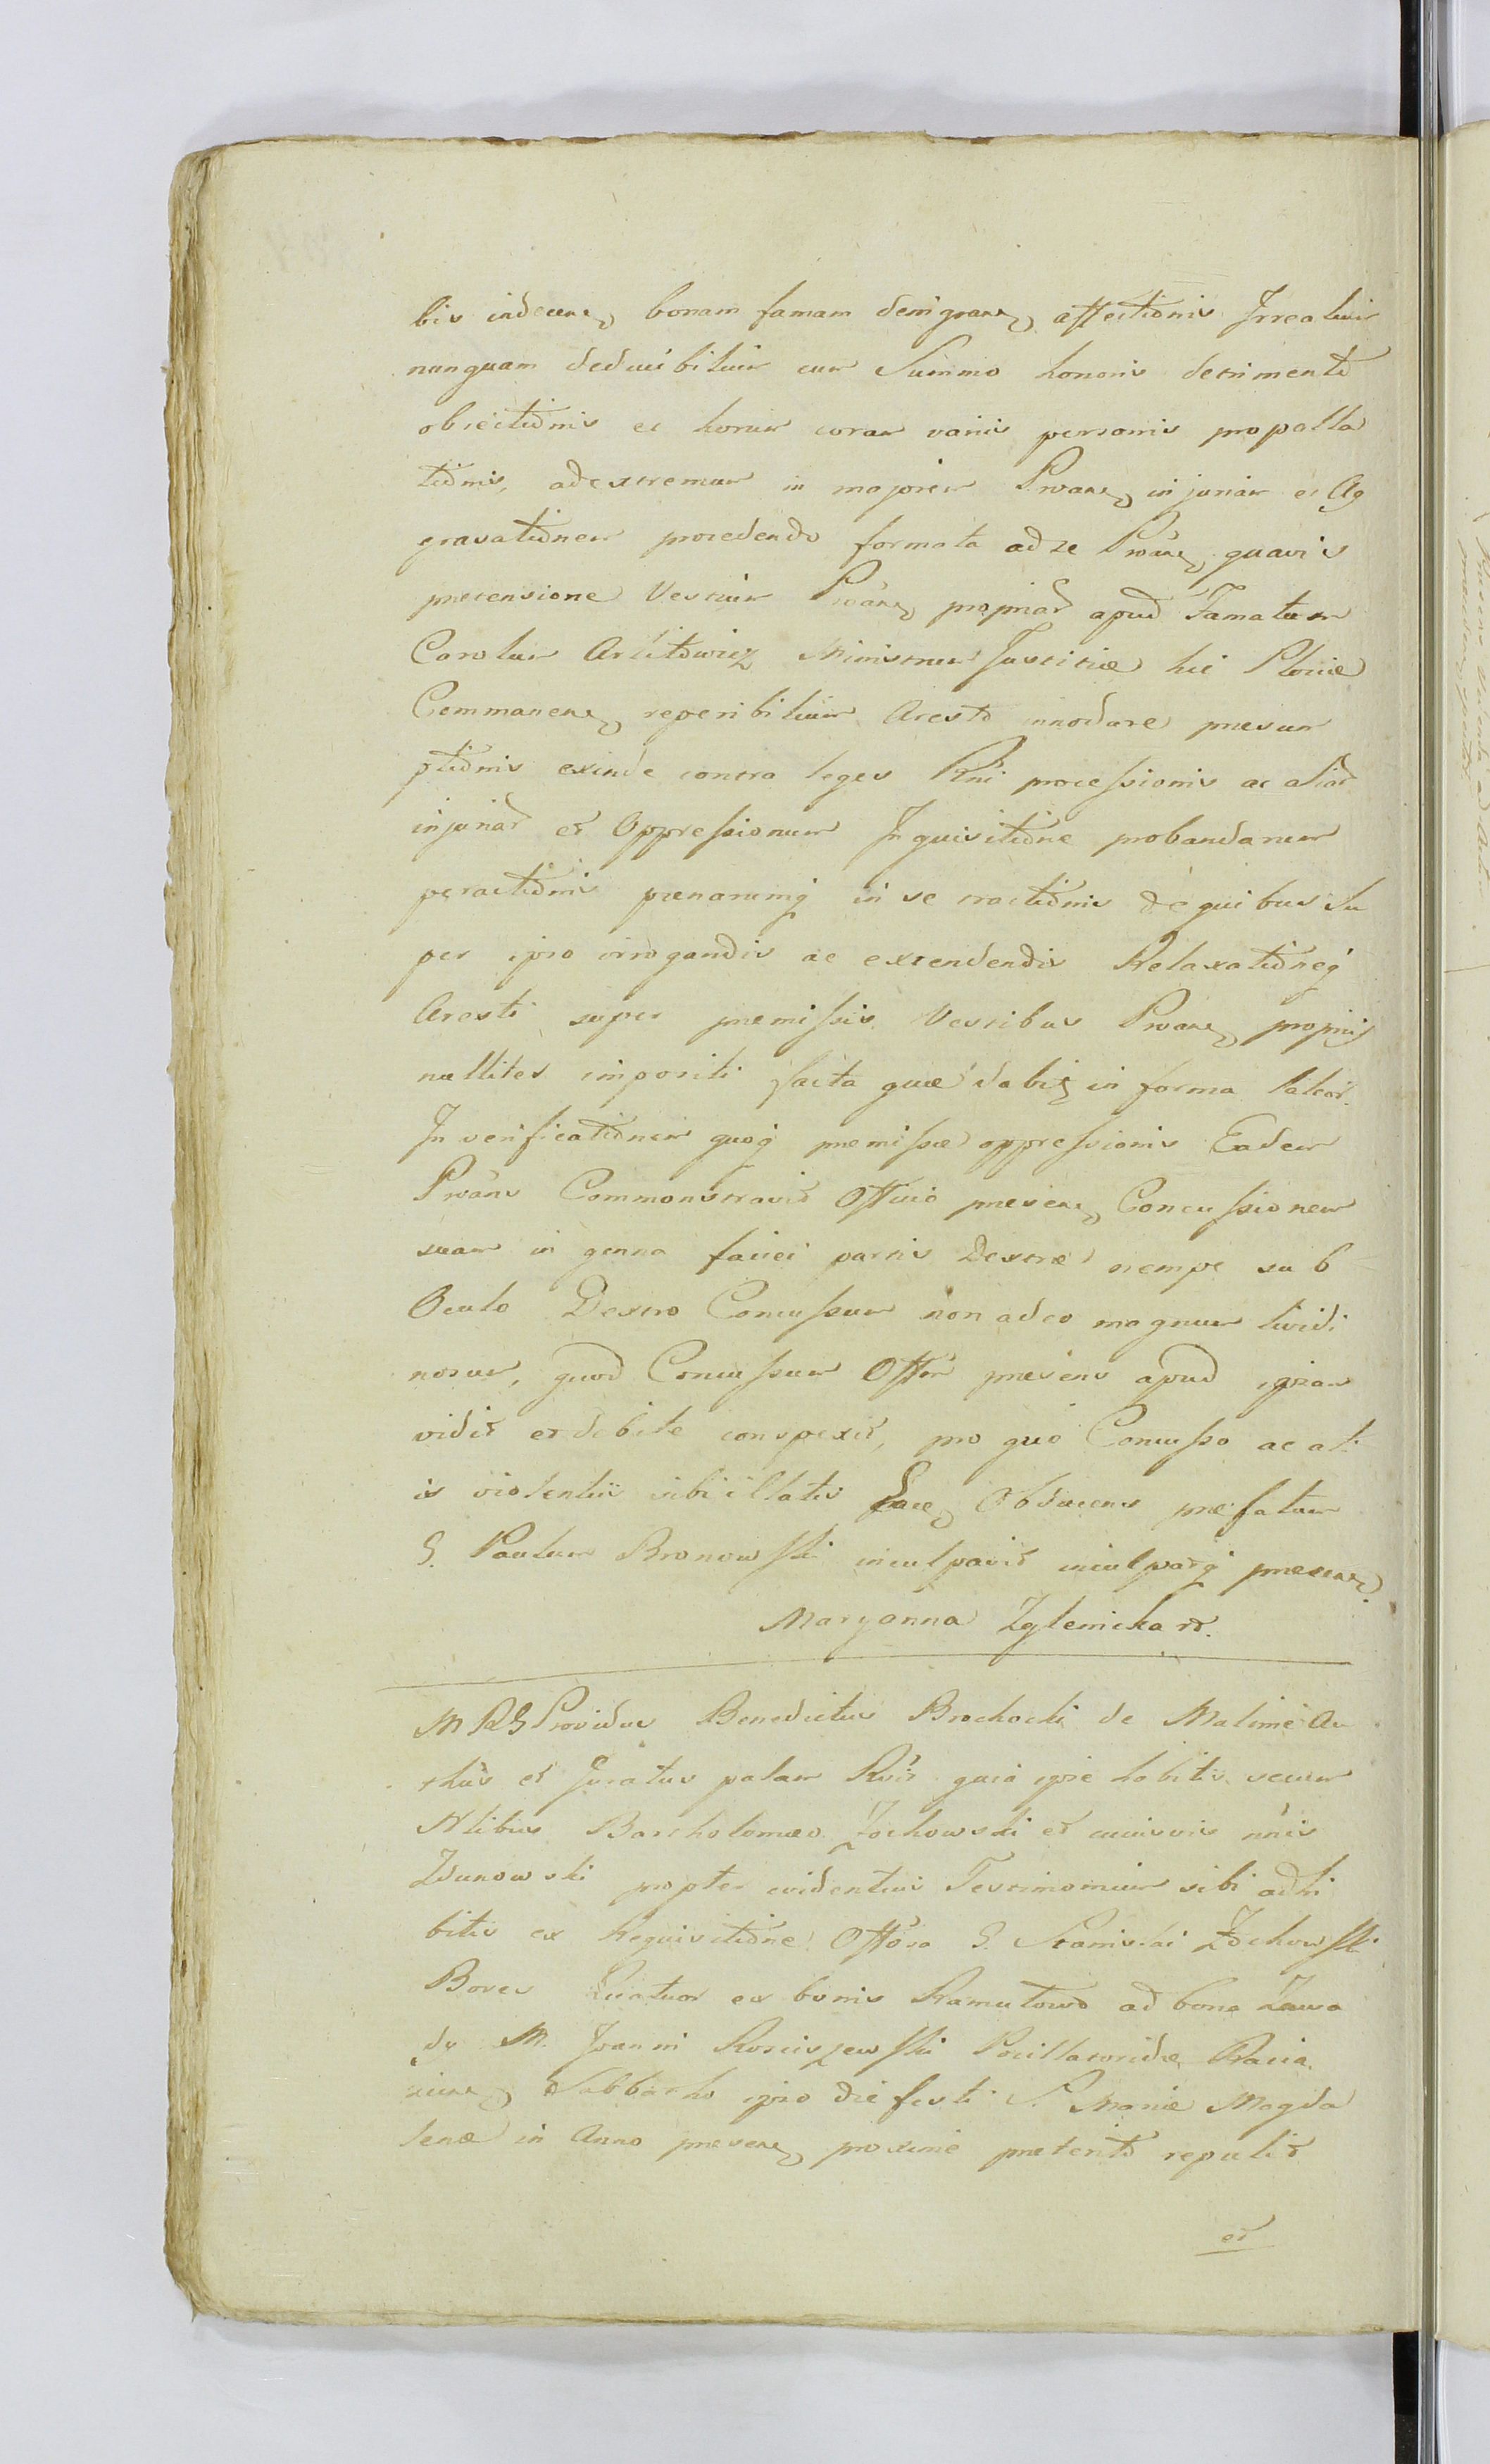 bis indecen, bonam famam denigran, affectionis Irrealium
nunquam deducibilium cum Summo honoris detrimento
obiectionis et horum coram variis personis propalla
tionis, ad extremum in majorem Proan, injuriam et Ag
gravationem procedendo formata ad se Proan, quavis
pretensione Vestium Proan, propriar apud Famatum
Carolum Ministrum Justitiae hic Plociae
Commanen, reperibilium Aresto innodare presum
ptionis exinde contra leges Rni processionis ac aliar
injuriar et Oppressionum Inquisitione probandarum
peractionis paenarumq in se tractionis de quibus su
per ipso irrogandis ac extendendis Relaxationeq
Aresti super premissis Vestibus Proan, propriis
nulliter impositi facta quae dabit in forma latior.
In verificationem quoq premissae oppressionis Eadem
Proans Commonstravit Officio presen, Concussionem
suam in genna faciei partis Dextrae nempe sub
Oculo Dextro Concussum non adeo magnum lividi
nosum, quod Concussum Offm presens apud ipsam
vidit et debite conspexit, pro quo Concusso ac ali
is violentiis sibi illatis Obducens praefatum
G. Paulum Bronowski inculpavit inculpatq presen,
Maryanna Zglenicka
M R G Providus Benedictus Brochocki de Malinie Au
thus et Juratus palam Rvit quia ipse habitis secum
Nlibus Bartholomaeo Żochowski et cuiusvis nnis
Zdunowski propter evidentius Testimonium sibi adhi
bitis ex Requisitione Offosa G. Stanislai Żochowski
Boves Quatuor ex bonis Ramutowo ad bona Zawa
dy M. Joanni Rosciszewski Pocillatoridae Racia
zien, Sabbatho ipso die festi S. Mariae Magda
lenae in Anno presen, proxime preterito repulit
et